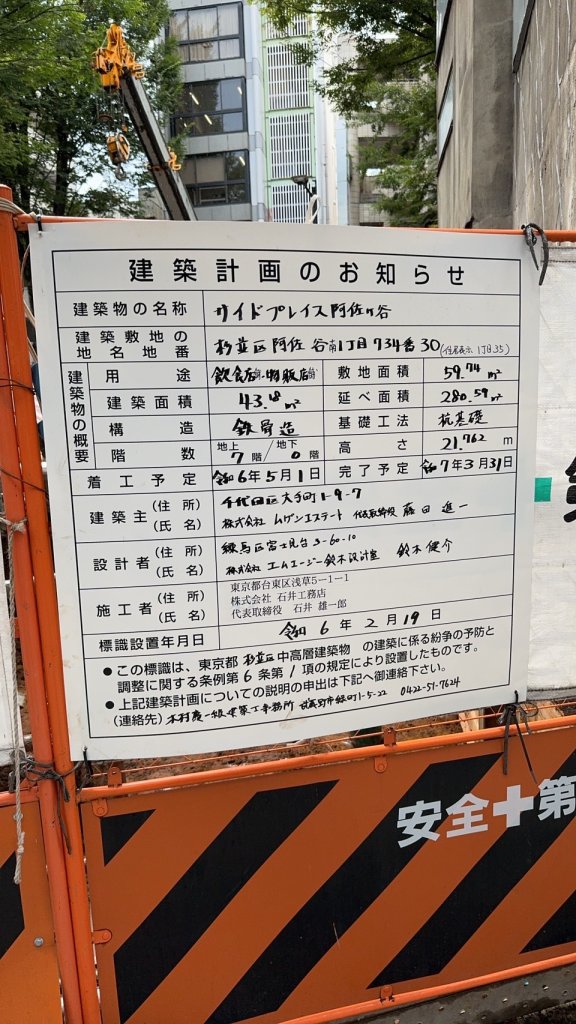 建築計画のお知らせ
建築物の名称 サイドプレイス阿佐ヶ谷
建築敷地の地名地番 杉並区阿佐谷南1丁目734番30(住居表示 1丁目35)
建築物の概要
用途 飲食店舗・物販店舗 敷地面積 59.74㎡
建築面積 43.18㎡ 延べ面積 280.59㎡
構造 鉄骨造 基礎工法 杭基礎
階数 地上7階/地下0階 高さ 21.762m
着工予定 令和6年5月1日 完了予定 令和7年3月31日
建築主(住所) 千代田区大手町1-9-7
(氏名) 株式会社 ムゲンエステート 代表取締役 藤田 進一
設計者(住所) 練馬区富士見台3-60-10
(氏名) 株式会社 エムエージー鈴木設計室 鈴木健介
施工者(住所) 東京都台東区浅草5-1-1
(氏名) 株式会社 石井工務店
代表取締役 石井 雄一郎
標識設置年月日 令和6年2月19日
●この標識は、東京都杉並区中高層建築物の建築に係る紛争の予防と
調整に関する条例第6条第1項の規定により設置したものです。
●上記建築計画についての説明の申出は下記へ御連絡下さい。
(連絡先) 木村慶一級建築士事務所 武蔵野市緑町1-5-22 0422-51-7624
安全✚第